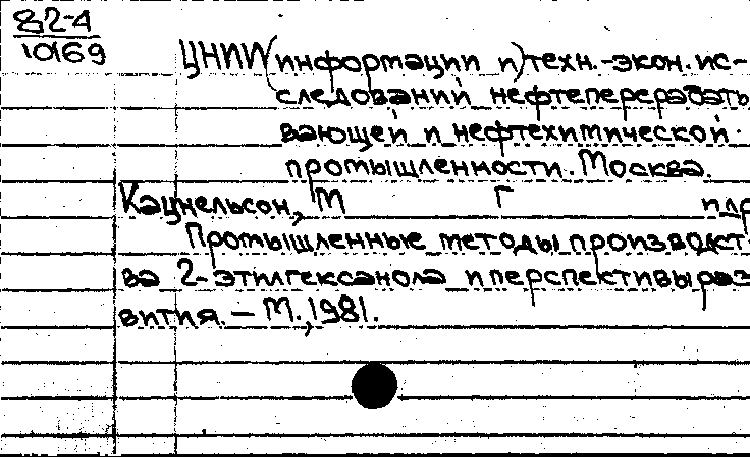 82-4
10169
ЦНИИ (информации и) техн.-экон. ис-
следований нефтеперерабаты
вающей и нефтехимической
промышленности. Москва.
Кацнельсон, М Г и др
Промышленные методы производст
ва 2-этилгексанола и перспективы раз
вития. — М., 1981.